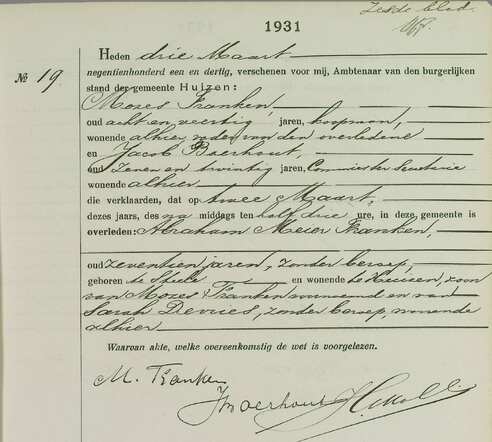 Zesde blad.
1931
Heden drie Maart
№ 19.
negentienhonderd een en dertig, verschenen voor mij, Ambtenaar van den burgerlijken
stand der gemeente Huizen:
Mozes Franken,
oud acht en veertig jaren, koopman,
wonende alhier, vader van den overledene
en Jacob Baerhout,
oud zeven en twintig jaren, Commies ter Secretarie
wonende alhier
die verklaarden, dat op twee Maart,
dezes jaars, des na middags ten half drie ure, in deze gemeente is
overleden: Abraham Meier Franken,
oud zeventien jaren, zonder beroep,
geboren te en wonende te Huizen, zoon
van Mozes Franken voornoemd en van
Sarah Devries, zonder beroep, wonende
alhier
Waarvan akte, welke overeenkomstig de wet is voorgelezen.
M. Franken
JBaerhout